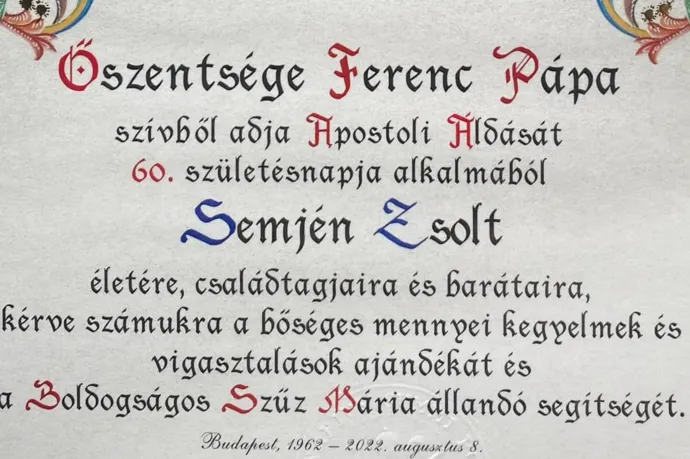 Őszentsége Ferenc Pápa
szívből adja Apostoli Áldását
60. születésnapja alkalmából
Semjén Zsolt
életére, családtagjaira és barátaira,
kérve számukra a bőséges mennyei kegyelmek és
vigasztalások ajándékát és
a Boldogságos Szűz Mária állandó segítségét.
Budapest, 1962 – 2022. augusztus 8.